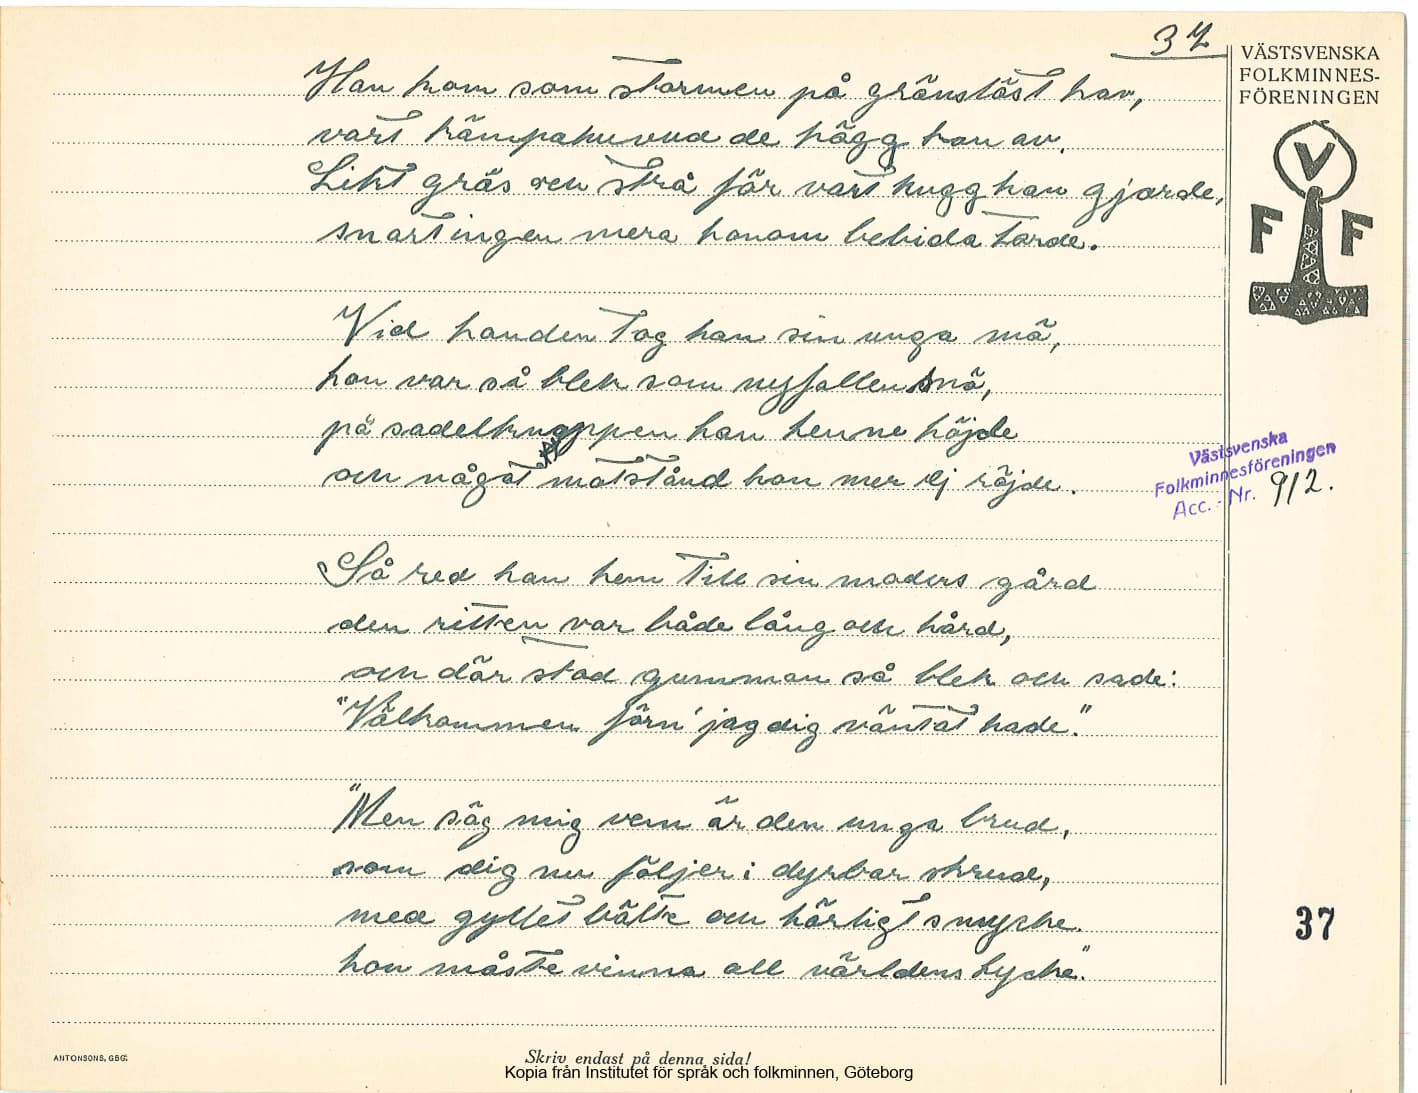 37
VÄSTSVENSKA
FOLKMINNES-
FÖRENINGEN
V
F F
Han kom som stormen på gränslöst hav,
vart kämpahuvud de högg han av.
Likt gräs och strå för vart hugg han gjorde,
snart ingen mera honom bebida torde.
Vid handen tog han sin unga mö,
hon var så blek som nyfallen snö,
på sadelknappen han henne höjde
och något motstånd hon mer ej röjde.
Så red han hem till sin moders gård
den ritten var både lång och hård,
och där stod gumman så blek och sade:
"Välkommen förn' jag dig väntat hade."
"Men säg mig vem är den unga brud,
som dig nu följer i dyrbar skrud,
med gyllet bälte och härligt smycke.
hon måste vinna all världens lycke."
Västsvenska
Folkminnesföreningen
Acc. - Nr. 912.
37
ANTONSONS, GBG.
Skriv endast på denna sida!
Kopia från Institutet för språk och folkminnen, Göteborg